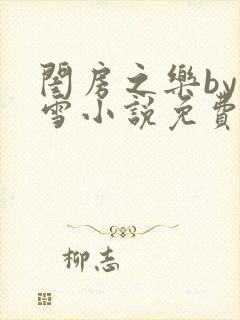 閨房之樂by
雪小說免費
柳志